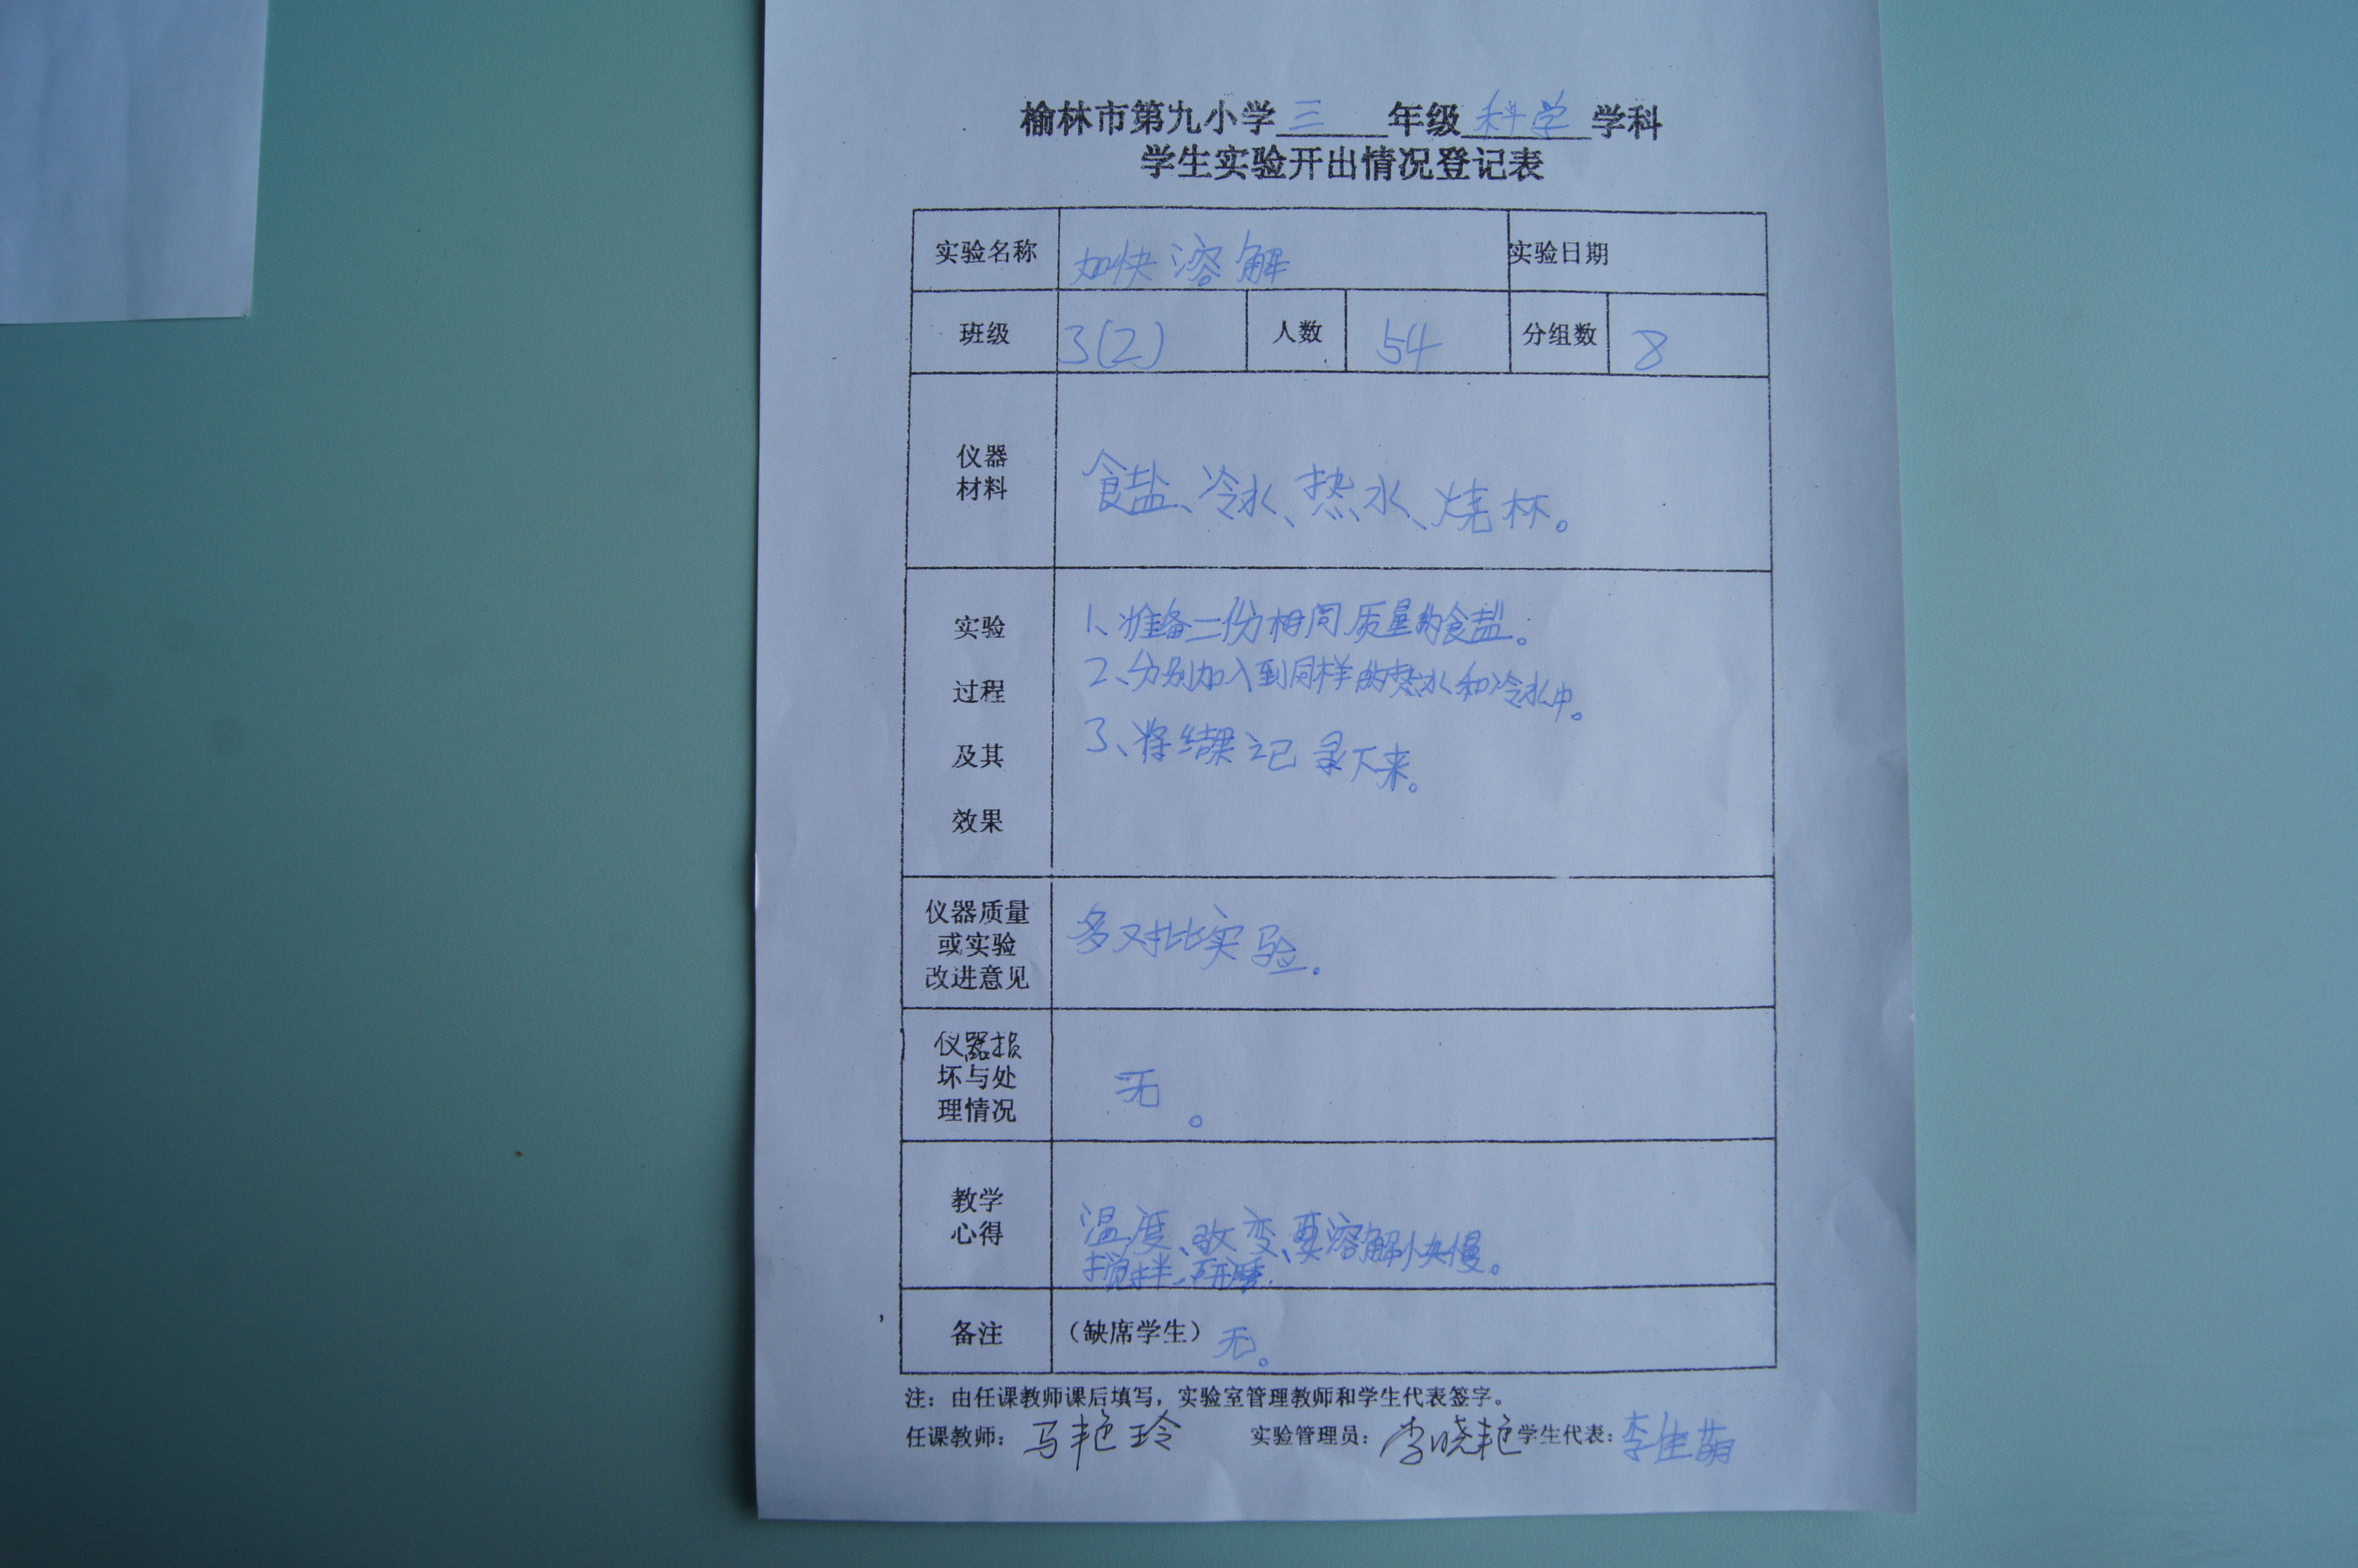 榆林市第九小学三年级科学学科
学生实验开出情况登记表
实验名称 加快溶解 实验日期
班级 3(2) 人数 54 分组数 8
仪器
材料
食盐、冷水、热水、烧杯。
实验
过程
及其
效果
1、准备二份相同质量的食盐。
2、分别加入到同样的热水和冷水中。
3、将结果记录下来。
仪器质量
或实验
改进意见
多对比实验。
仪器损
坏与处
理情况
无。
教学
心得
温度、改变、要溶解快慢。
搅拌、研磨.
备注 (缺席学生) 无。
注：由任课教师课后填写，实验室管理教师和学生代表签字。
任课教师：马艳玲 实验管理员：李晓艳 学生代表：李佳萌